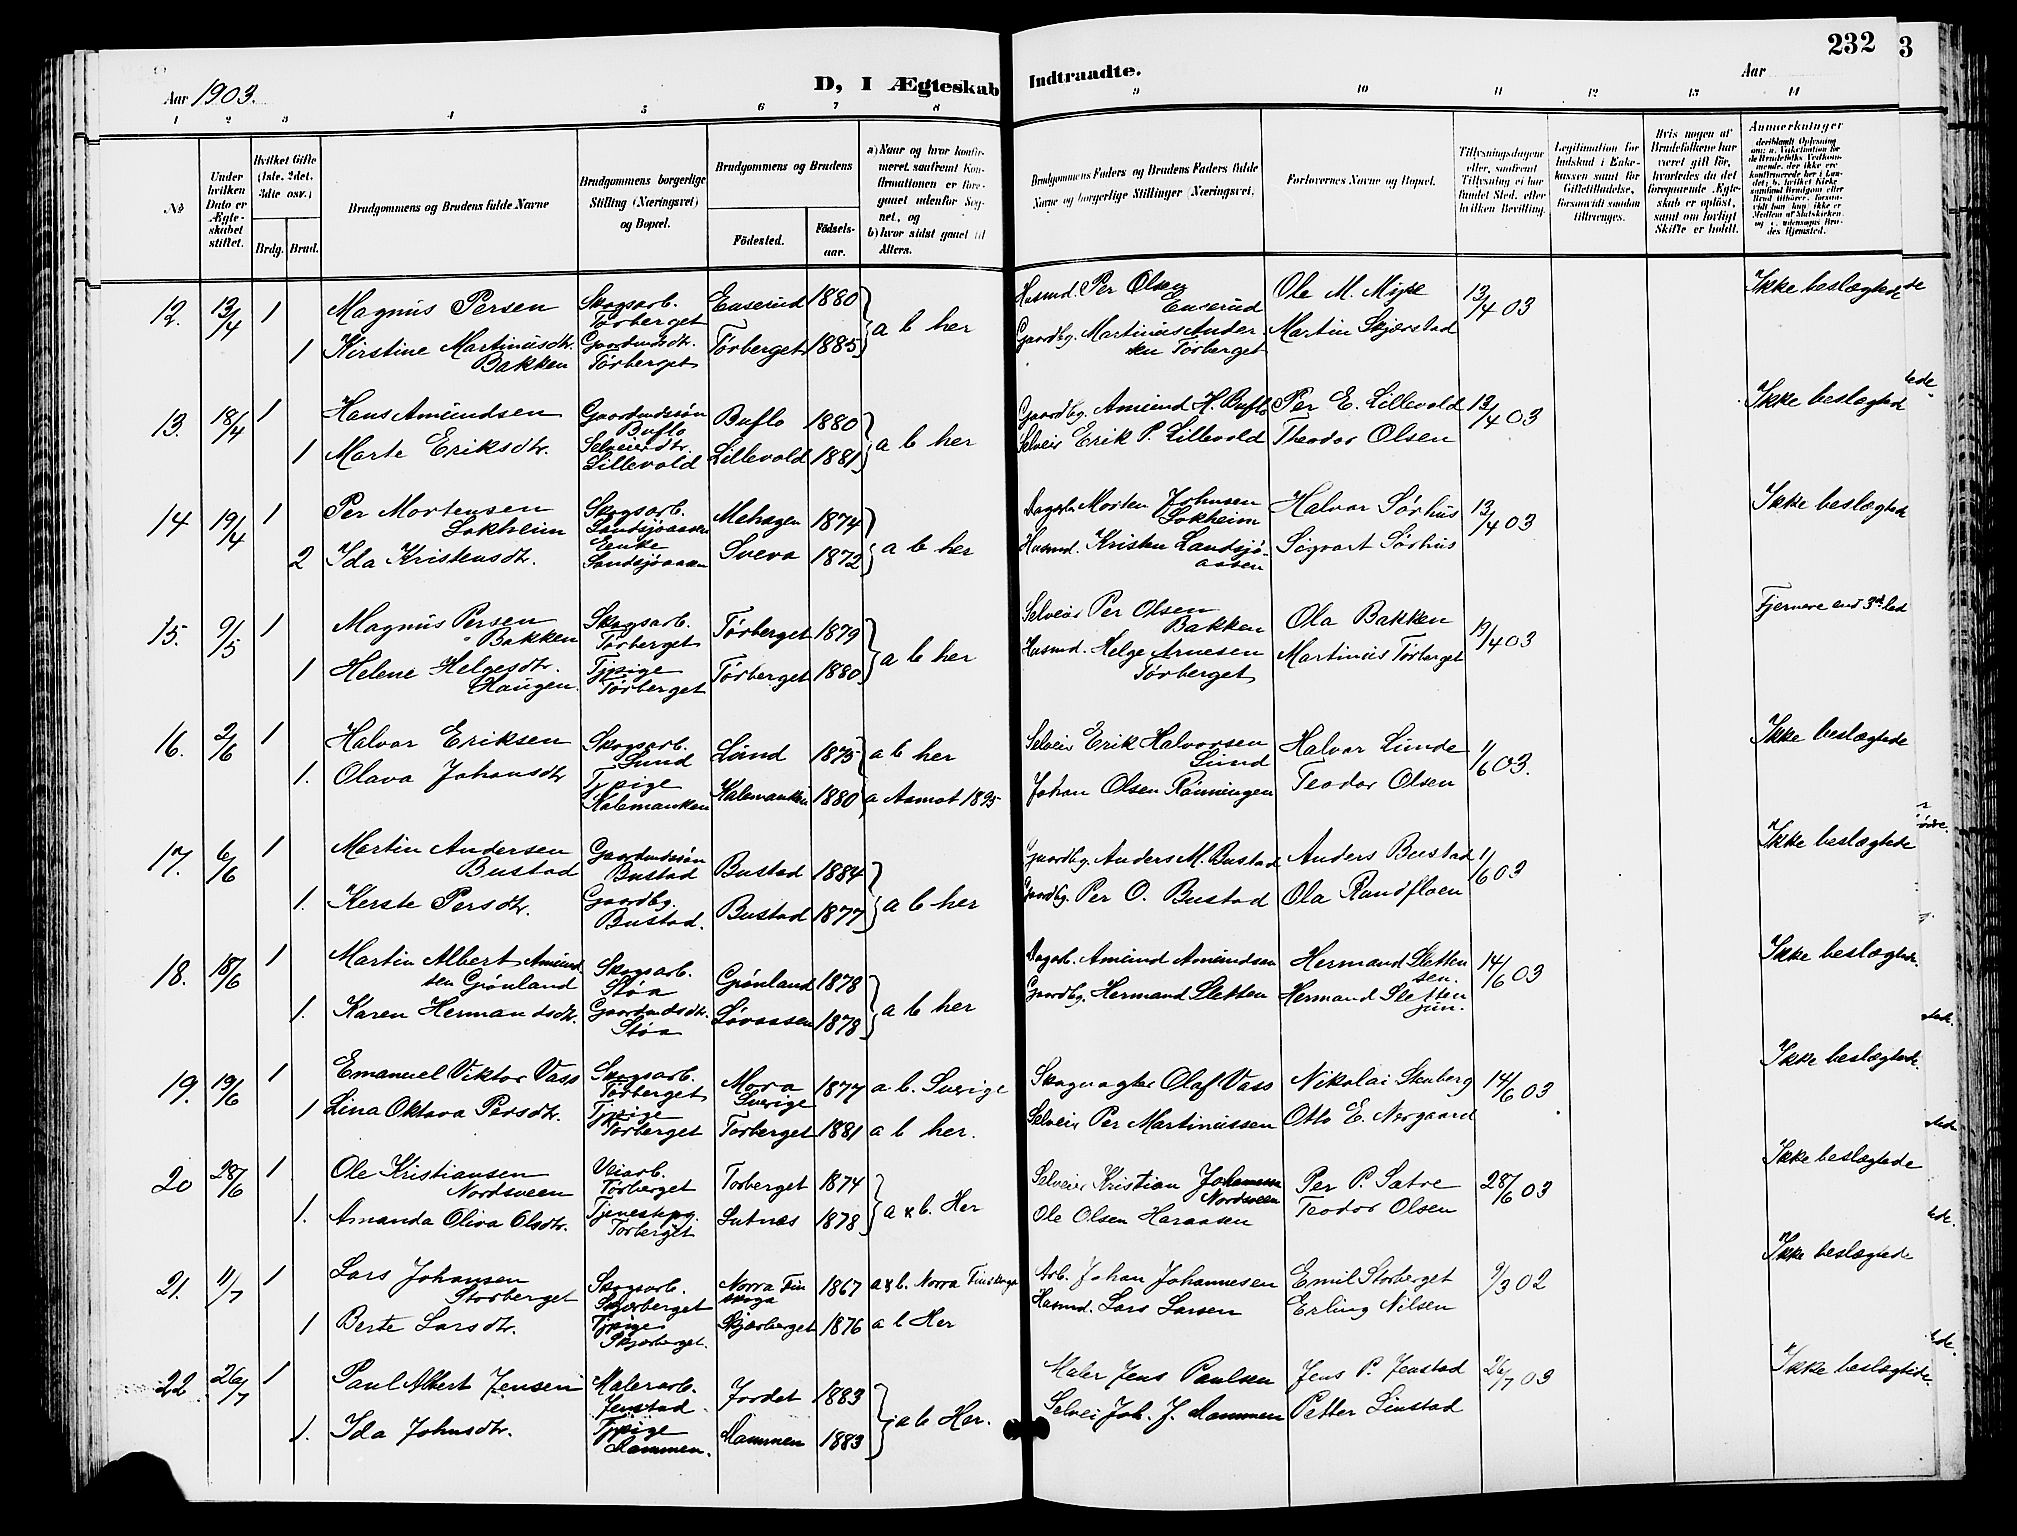 232
3
Aar 1903.
D, I Ægteskab Indtraadte.
Aar
1 2 3 4 5 6 7 8 9 10 11 12 13 14
No
Under hvilken Dato er Ægteskabet stiftet.
Hvilket Gifte (1ste, 2det, 3die osv.)
Brdg. Brud.
Brudgommens og Brudens fulde Navne
Brudgommens borgerlige Stilling (Næringsvei) og Bopæl.
Brudgommens og Brudens
Fødested. Fødselsaar.
a) Naar og hvor konfirmeret, saafremt Konfirmationen er foregaaet udenfor Sognet, og
b) hvor sidst gaaet til Alters.
Brudgommens Faders og Brudens Faders fulde Navne og borgerlige Stillinger (Næringsvei).
Forlovernes Navne og Bopæl.
Tillysningsdagene eller, saafremt Tillysning ei har fundet Sted, efter hvilken Bevilling.
Legitimation for Indskud i Enkekassen samt for Giftetilladelse, forsaavidt saadan tiltrænges.
Hvis nogen af Brudefolkene har været gift før, hvorledes da det foregaaende Ægteskab er opløst, samt om lovligt Skifte er holdt.
Anmerkninger
12. 13/4 1 Magnus Persen Skogsarb. Tørberget Enserud 1880 a b her Husmd. Per Olsen Enserud Ole M. Moe 13/4 03 Ikke beslægtede
1 Kirstine Martinusdtr. Bakken Gaardmdsdtr. Tørberget Tørberget 1885 Gaardbg. Martinus Andersen Tørberget Martin Skjærstad
13. 18/4 1 Hans Amundsen Gaardmdssøn Buflo Buflo 1880 a b her Gaardbg. Amund H. Buflo Per E. Lillevold 13/4 03 Ikke beslægted
1 Marte Eriksdtr. Selveierdtr. Lillevold Lillevold 1881 Selveier Erik P. Lillevold Theodor Olsen
14 19/4 1 Per Mortensen Lokheim Skogsarb. Landsjøaasen Mehagen 1874 a b her Dagarb. Morten Johnsen Lokheim Halvar Sørhus 13/4 03 Ikke beslægted
2 Ida Kristensdtr. Enke Landsjøaasen Svea 1872 Husmd. Kristen Landsjøaasen Sigvart Sørhus
15. 9/5 1 Magnus Persen Bakken Skogsarb. Tørberget Tørberget 1879 a b her Selveier Per Olsen Bakken Ola Bakken 19/4 03 Fjernere end 3die led
1 Helene Helgesdtr. Haugen Tjpige Tørberget Tørberget 1880 Husmd. Helge Arnesen Tørberget Martinus Tørberget
16. 2/6 1 Halvor Eriksen Skogsarb. Lund Lund 1875 a b her Selveier Erik Halvorsen Lund Halvor Lunde 1/6 03. Ikke beslægtede
1. Olava Johansdtr Tjpige Kalemanken Kalemanken 1880 a Aamot 1895 Johan Olsen Rønningen Teodor Olsen
17. 6/6 1 Martin Andersen Bustad Gaardmdssøn Bustad Bustad 1884 a b her Gaardbg. Anders M. Bustad Anders Bustad 1/6 03 Ikke beslægtede
1. Kerste Persdtr. Gaardbg. Bustad. Bustad 1877 Gaardbg. Per O. Bustad Ola Rundfloen
18. 18/6 1 Martin Albert Amundsen Grønland Skogsarb. Støa Grønland 1878 a b her Dagarb. Amund Amundsen Hermand Sletten sen. 14/6 03 Ikke beslægtede.
1. Karen Hermandsdtr. Gaardmdsdtr. Støa Løvaasen 1878 Gaardbg. Hermand Sletten Hermand Sletten jun.
19. 19/6 1 Emanuel Viktor Vass Skogsarb. Tørberget Mora Sverige 1877 a b. Sverige Skogvagter Olaf Vass Nikolai Stenberg 14/6 03 Ikke beslægtede.
1 Lina Oktava Persdtr. Tjpige Tørberget Tørberget 1881 a b her. Selveier Per Martinussen Otto E. Norgaard
20 28/6 1 Ole Kristiansen Nordsveen Veiarb. Tørberget Tørberget 1874 a & b. Her Selveier Kristian Johansen Nordsveen Per P. Sætre 28/6 03 Ikke beslægtede
1. Amanda Oliva Olsdtr. Tjenestepg. Tørberget Lutnæs 1878 Ole Olsen Haraasen Teodor Olsen
21. 11/7 1 Lars Johansen Storberget Skogsarb. Skjærberget Norra Finskoga 1867 a & b. Norra Finskoga Arb. Johan Johannesen Emil Storberget 9/3 02 Ikke beslægtede
1 Berte Larsdtr. Tjpige Skjærberget. Skjærberget 1876 a b Her Husmd. Lars Larsen Erling Nilsen
22. 26/7 1 Paul Albert Jensen Malerarb. Jenstad Jordet 1883 a b Her. Maler Jens Paulsen Jens P. Jenstad 26/7 03 Ikke beslægtede.
1. Ida Johnsdtr. Tjpige Mammen. Mammen 1883 Selvei Joh. J. Mammen Petter Linstad